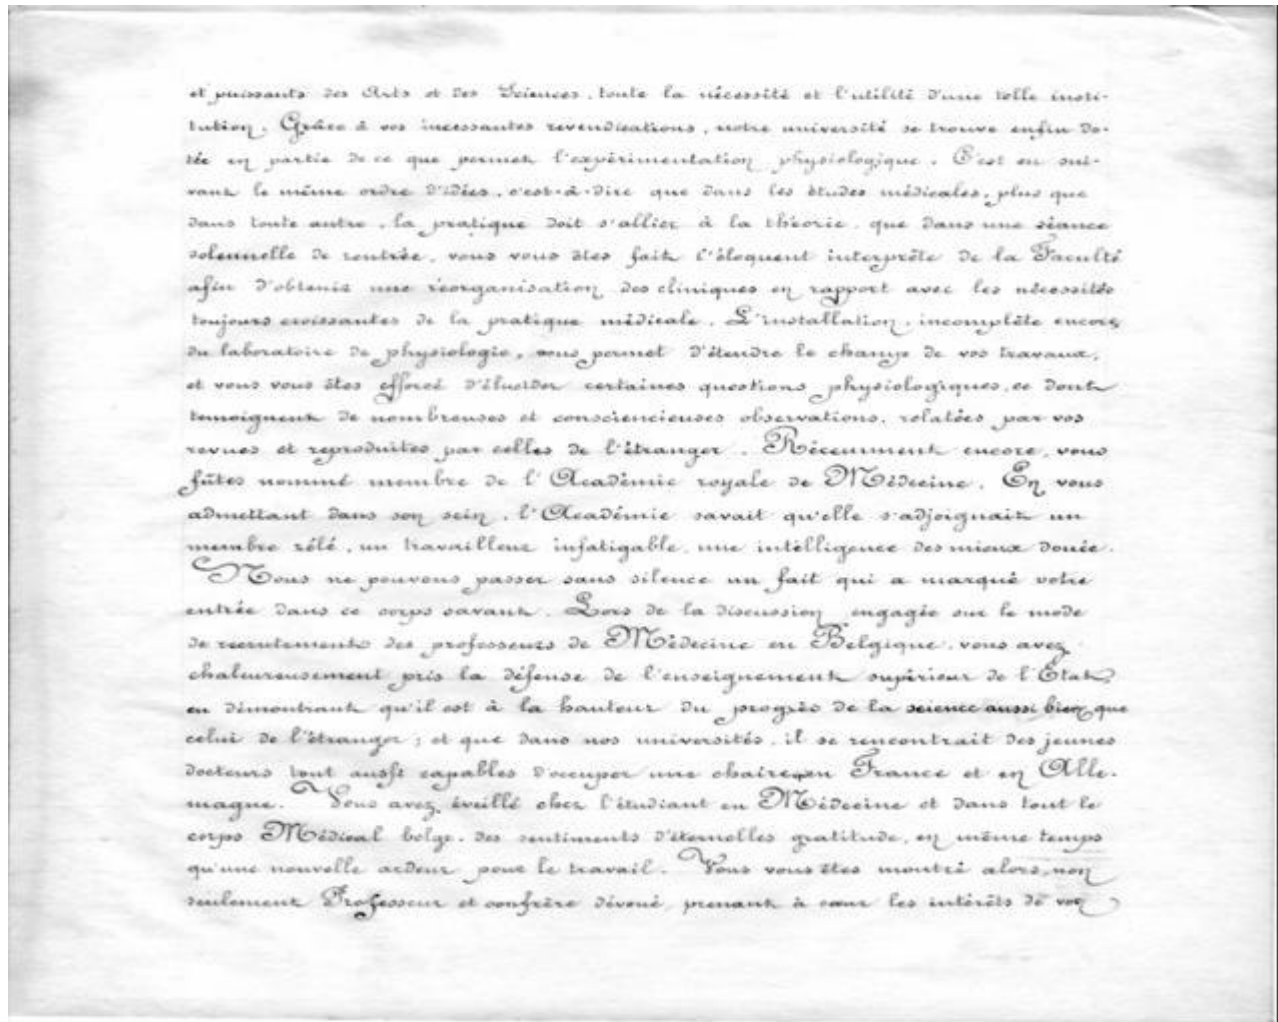 et puissants des Arts et des Sciences, toute la nécessité et l'utilité d'une telle insti-
tution. Grâce à vos incessantes revendications, notre université se trouve enfin do-
tée en partie de ce que permet l'expérimentation physiologique. C'est en sui-
vant le même ordre d'idées, c'est-à-dire que dans les études médicales, plus que
dans toute autre, la pratique doit s'allier à la théorie, que dans une séance
solennelle de rentrée, vous vous êtes fait l'éloquent interprête de la Faculté
afin d'obtenir une réorganisation des cliniques en rapport avec les nécessités
toujours croissantes de la pratique médicale. L'installation, incomplête encore,
du laboratoire de physiologie, vous permet d'étendre le champ de vos travaux,
et vous vous êtes efforcé d'élucider certaines questions physiologiques, ce dont
temoignent de nombreuses et consciencieuses observations, relatées par vos
revues et reproduites par celles de l'étranger. Récemment encore, vous
fûtes nommé membre de l'Académie royale de Médecine. En vous
admettant dans son sein, l'Académie savait qu'elle s'adjoignait un
membre zélé, un travailleur infatigable, une intelligence des mieux douée.
Nous ne pouvons passer sans silence un fait qui a marqué votre
entrée dans ce corps savant. Lors de la discussion engagée sur le mode
de recrutements des professeurs de Médecine en Belgique, vous avez
chaleureusement pris la défense de l'enseignement supérieur de l'État,
en démontrant qu'il est à la hauteur du progrès de la science aussi bien que
celui de l'étranger; et que dans nos universités, il se rencontrait des jeunes
docteurs tout aussi capables d'occuper une chaire en France et en Alle-
magne. Vous avez éveillé chez l'étudiant en Médecine et dans tout le
corps Médical belge, des sentiments d'éternelles gratitude, en même temps
qu'une nouvelle ardeur pour le travail. Vous vous êtes montré alors, non
seulement Professeur et confrère dévoué, prenant à cœur les intérêts de vos